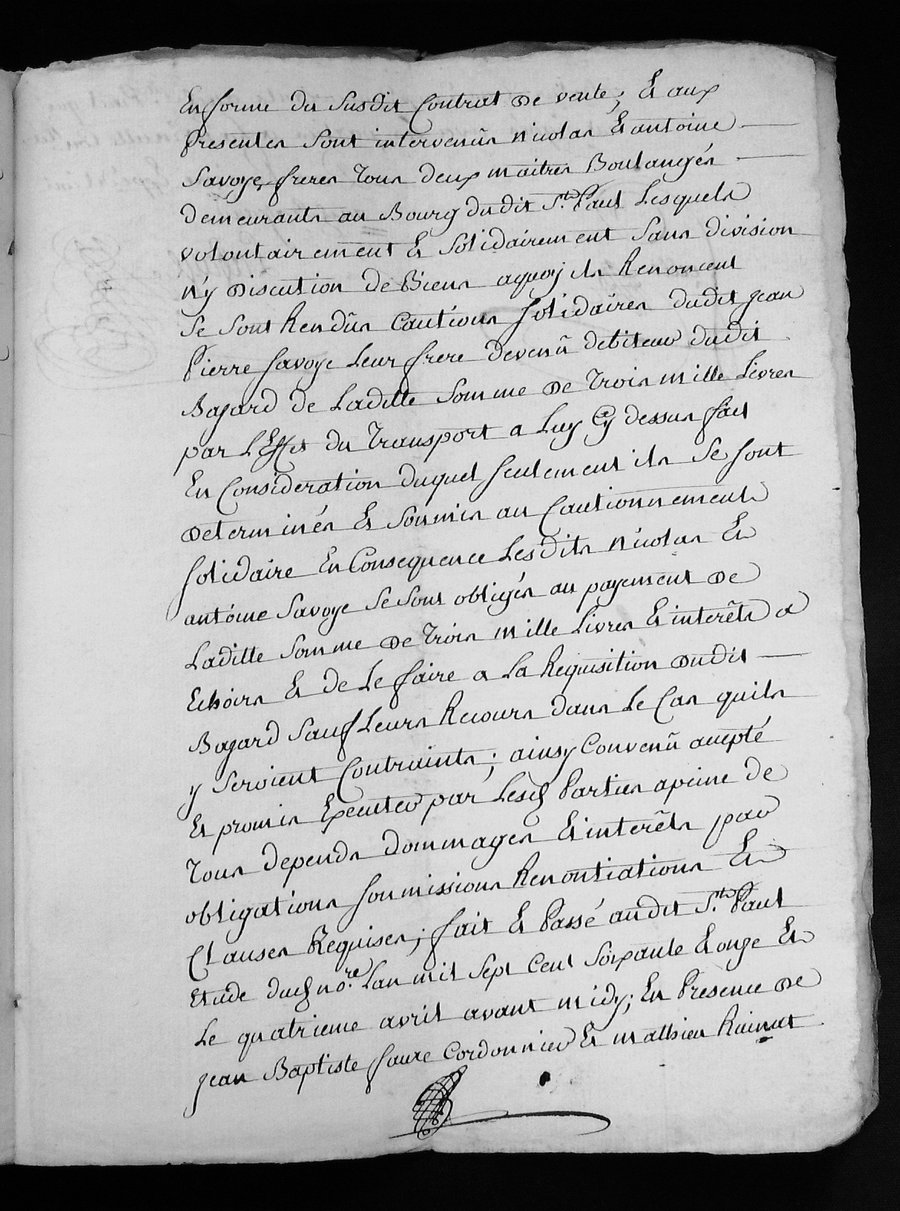 En forme du susdit Contrat de vente; Et aux
Presentes sont intervenûs Nicolas Et antoine
Savoye freres tous deux maitres Boulangés
demeurants au Bourg dudit St. Paul Lesquels
volontairement Et solidairement sans division
n'y discution de Biens aquoy ils Renoncent
se sont Rendûs Cautions solidaires dudit jean
Pierre savoye Leur frere devenû debiteur dudit
Bajard de Laditte somme de Trois mille Livres
par L'Effet du Transport a Luy Cy dessus fait
En Consideration duquel seulement ils se sont
determinés Et soumis au Cautionnement
solidaire En Consequence Lesdits Nicolas Et
antoine Savoye se sont obligés au payement de
Laditte somme de Trois mille Livres Et interêts a
Echoirs Et de Le faire a La Requisition dudit
Bajard sauf Leurs Recours dans Le Cas quils
y seroient Contraints; ainsy Convenû accepté
Et promis Executer par Lesd. Parties a peine de
tous depends dommages Et interêts par
obligations soumissions Renontiations Et
Clauses Requises; fait Et Passé audit St. Paul
Etude dud. nore. Lan mil sept Cent soixante Et onze Et
Le quatrieme avril avant midy; En Presence de
jean Baptiste faure Cordonnier Et mathieu Ruinat